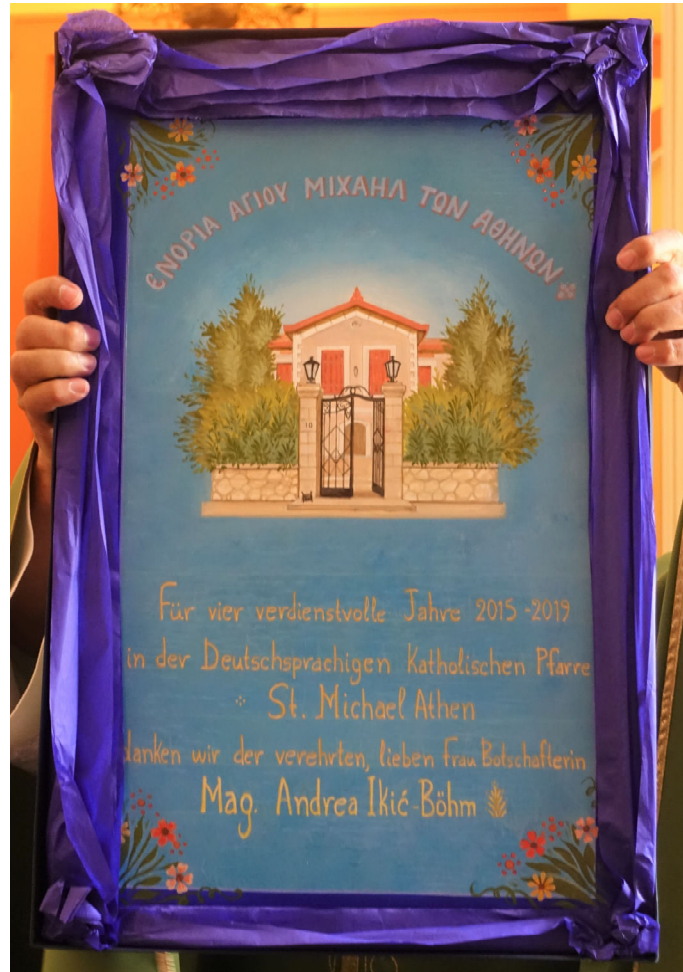 ΕΝΟΡΙΑ ΑΓΙΟΥ ΜΙΧΑΗΛ ΤΩΝ ΑΘΗΝΩΝ
10
Für vier verdienstvolle Jahre 2015-2019
in der Deutschsprachigen Katholischen Pfarre
St. Michael Athen
danken wir der verehrten, lieben Frau Botschafterin
Mag. Andrea Ikić-Böhm